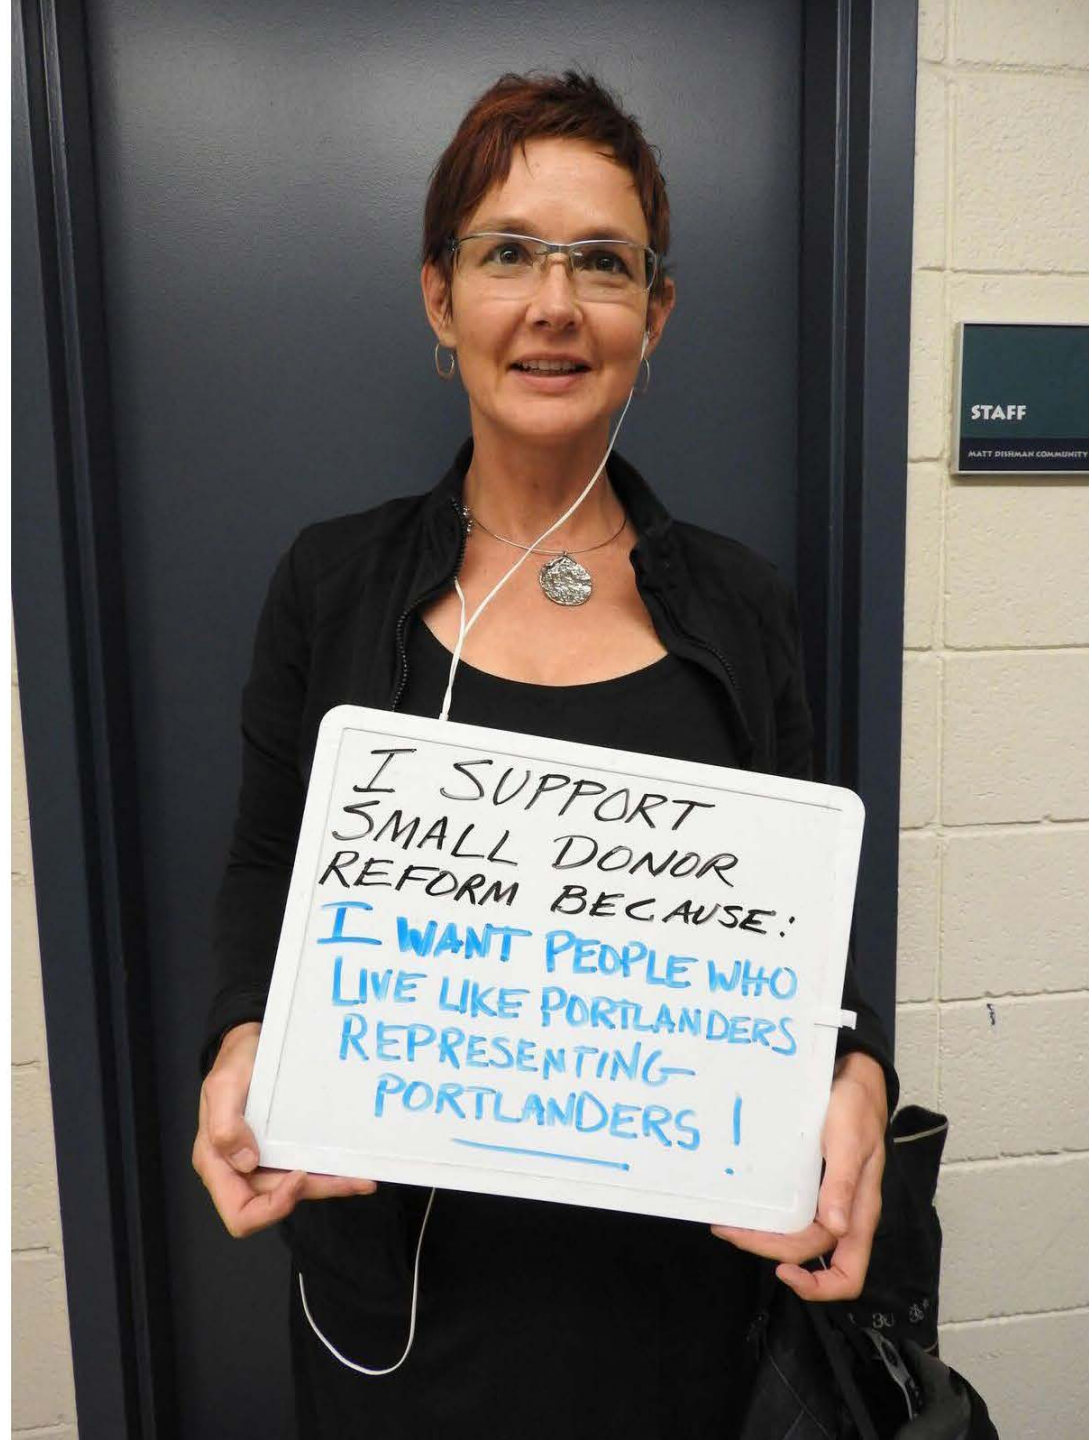 STAFF
MATT DISHMAN COMMUNITY
I SUPPORT
SMALL DONOR
REFORM BECAUSE:
I WANT PEOPLE WHO
LIVE LIKE PORTLANDERS
REPRESENTING
PORTLANDERS!